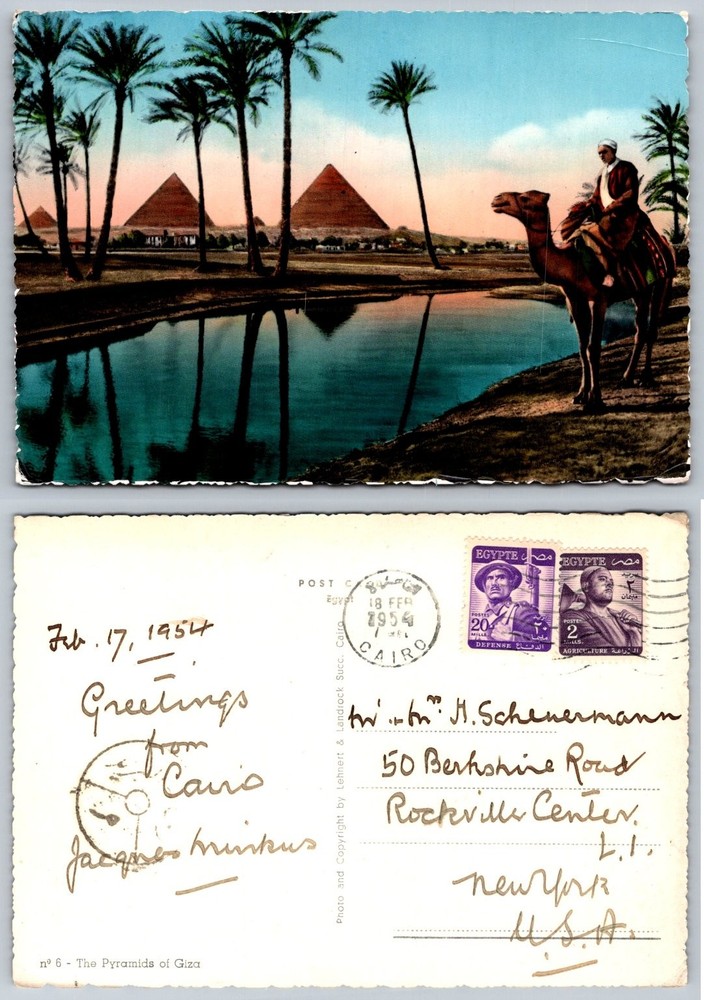 POST
Egypt
القاهرة
18 FEB
1954
CAIRO
EGYPTE مصر
POSTES
20
MILLS.
٢٠
مليمات
DEFENSE الدفاع
EGYPTE مصر
٢
مليمات
POSTES
2
MILLS.
AGRICULTURE الزراعة
Feb. 17, 1954
Greetings
from
Cairo
Jacques Minkus
Photo and Copyright by Lehnert & Landrock Succ. Cairo
Mr. Mrs H. Scheuermann
50 Berkshire Road
Rockville Center.
L.I.
New York
U.S.A.
nº 6 - The Pyramids of Giza